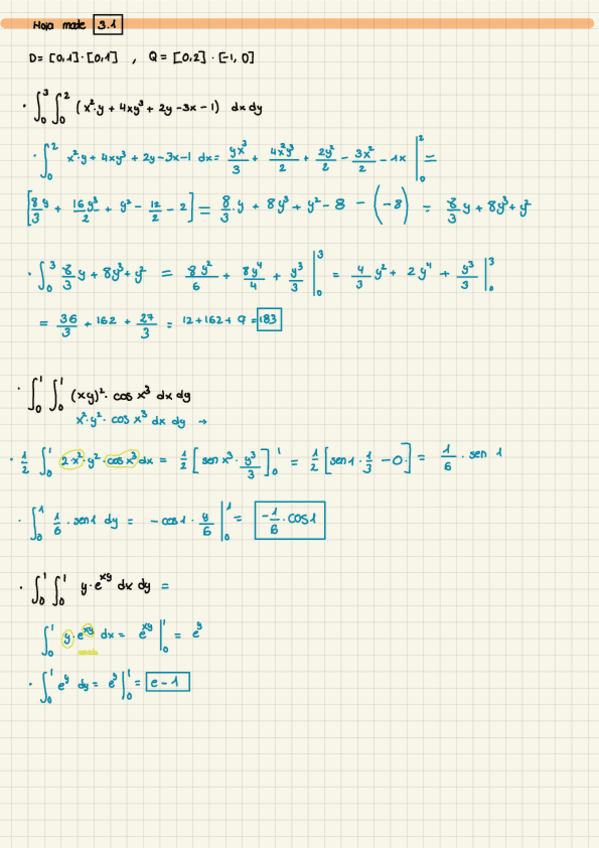 Hoja mate 3.1
D = [0,1]·[0,1] , Q = [0,2]·[-1, 0]
· ∫₀³ ∫₀² (x²·y + 4xy³ + 2y - 3x - 1) dx dy
· ∫₀² x²·y + 4xy³ + 2y - 3x - 1 dx = yx³/3 + 4x²y³/2 + 2y²/2 - 3x²/2 - 1x |₀² =
[8y/3 + 16y³/2 + y² - 12/2 - 2] = 8/3·y + 8y³ + y² - 8 - (-8) = 8/3 y + 8y³ + y²
· ∫₀³ 8/3 y + 8y³ + y² = 8y²/6 + 8y⁴/4 + y³/3 |₀³ = 4/3 y² + 2y⁴ + y³/3 |₀³
= 36/3 + 162 + 27/3 = 12 + 162 + 9 = 183
· ∫₀¹ ∫₀¹ (xy)²· cos x³ dx dy
x²·y²· cos x³ dx dy →
· 1/2 ∫₀¹ 2·x²·y²·cos x³ dx = 1/2 [sen x³ · y³/3]₀¹ = 1/2 [sen 1 · 1/3 - 0·] = 1/6 · sen 1
· ∫₀¹ 1/6 · sen 1 dy = - cos 1 · y/6 |₀¹ = -1/6 · cos 1
· ∫₀¹ ∫₀¹ y·e^xy dx dy =
∫₀¹ y·e^xy dx = e^xy |₀¹ = e^y
· ∫₀¹ e^y dy = e^y |₀¹ = e - 1